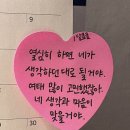 열심히 하면 네가
생각하던 대로 될거야.
여태 많이 고민했잖아.
네 생각과 마음이
맞을거야.